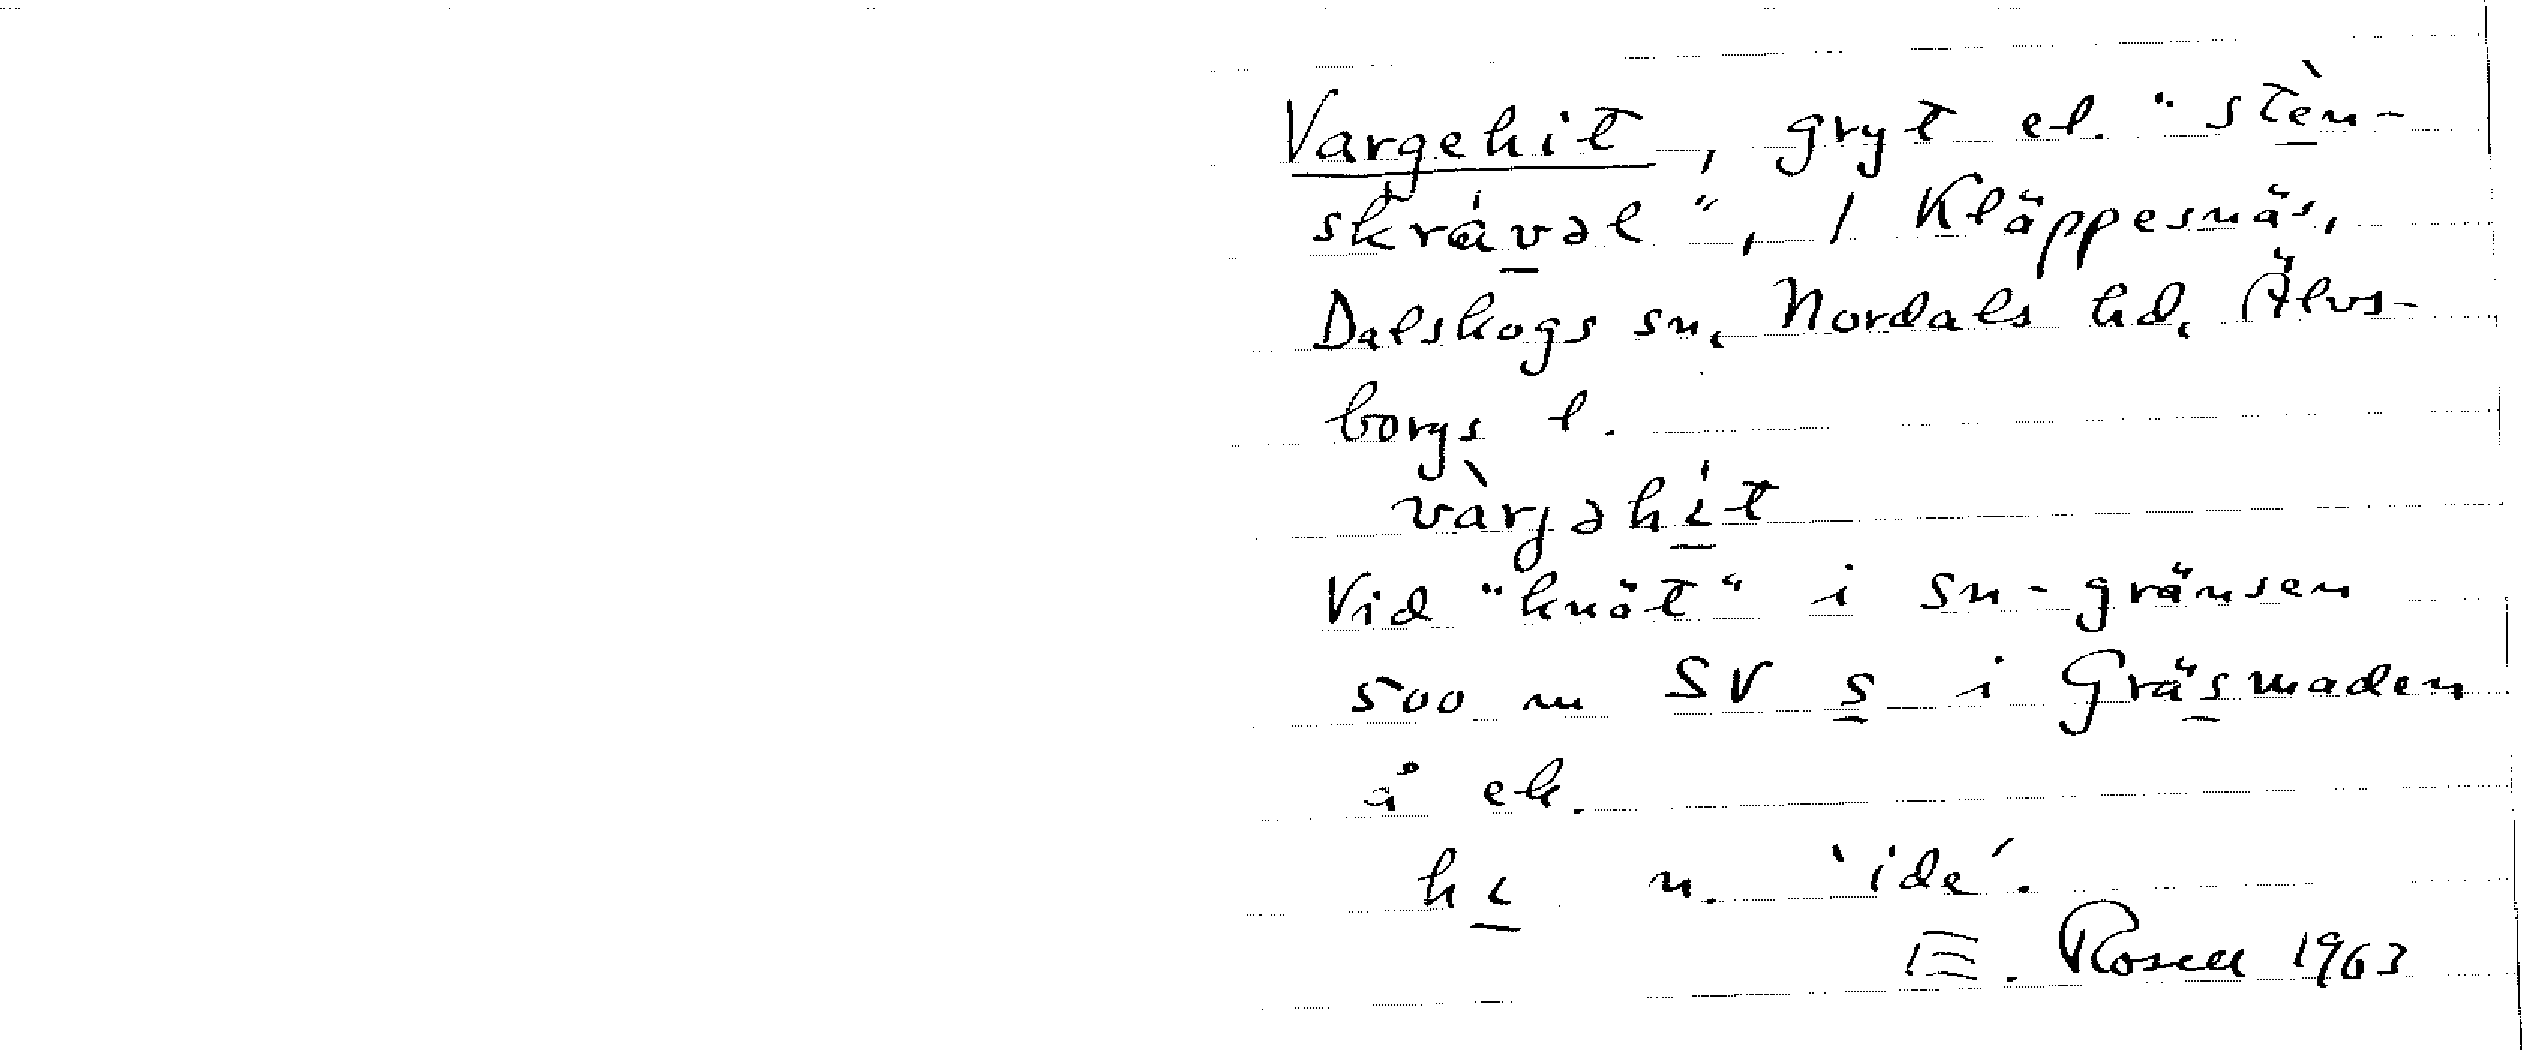 Vargehit, gryt el. "stèn-
skrávəl", / Kläppesnäs,
Dalskogs sn, Nordals hd, Älvs-
borgs l.
vàrgəhít
Vid "knöt" i sn-gränsen
500 m SV s i Gräsmaden
å ek.
hi n. 'ide'.
E. Rosell 1963